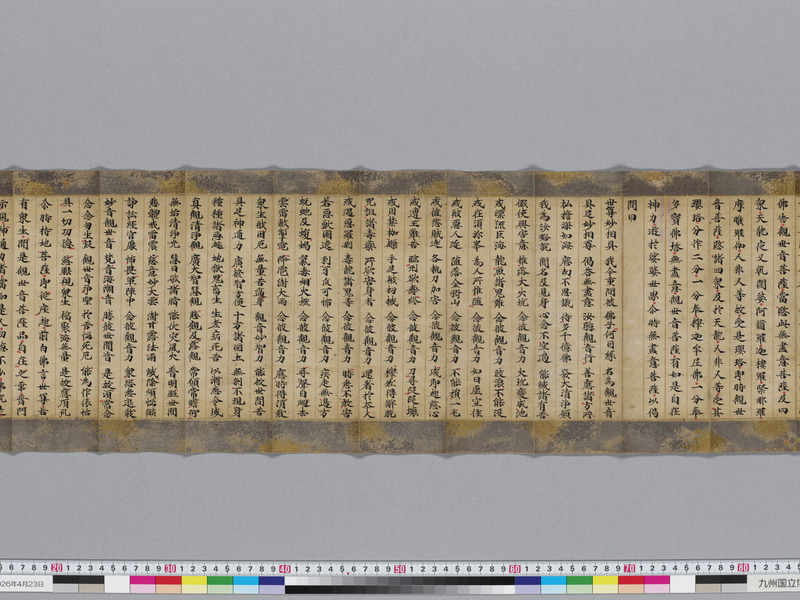 佛告觀世音菩薩當愍此無盡意菩薩及四
衆天龍夜叉乹闥婆阿脩羅迦樓羅緊那羅
摩睺羅伽人非人等故受是瓔珞即時觀世
音菩薩愍諸四衆及於天龍人非人等受其
瓔珞分作二分一分奉釋迦牟尼佛一分奉
多寶佛塔無盡意觀世音菩薩有如是自在
神力遊於娑婆世界尒時無盡意菩薩以偈
問曰
世尊妙相具 我今重問彼 佛子何因縁 名為觀世音
具足妙相尊 偈答無盡意 汝聽觀音行 善應諸方所
弘誓深如海 歷劫不思議 侍多千億佛 發大清淨願
我為汝略說 聞名及見身 心念不空過 能滅諸有苦
假使興害意 推落大火坑 念彼觀音力 火坑變成池
或漂流巨海 龍魚諸鬼難 念彼觀音力 波浪不能沒
或在須弥峯 為人所推墮 念彼觀音力 如日虛空住
或被惡人逐 墮落金剛山 念彼觀音力 不能損一毛
或值怨賊遶 各執刀加害 念彼觀音力 咸即起慈心
或遭王難苦 臨刑欲壽終 念彼觀音力 刀尋段段壞
或囚禁枷鎖 手足被杻械 念彼觀音力 釋然得解脫
呪詛諸毒藥 所欲害身者 念彼觀音力 還著於本人
或遇惡羅剎 毒龍諸鬼等 念彼觀音力 時悉不敢害
若惡獸圍遶 利牙爪可怖 念彼觀音力 疾走無邊方
蚖蛇及蝮蝎 氣毒烟火燃 念彼觀音力 尋聲自迴去
雲雷鼓掣電 降雹澍大雨 念彼觀音力 應時得消散
衆生被困厄 無量苦逼身 觀音妙智力 能救世間苦
具足神通力 廣修智方便 十方諸國土 無剎不現身
種種諸惡趣 地獄鬼畜生 生老病死苦 以漸悉令滅
真觀清淨觀 廣大智慧觀 悲觀及慈觀 常願常瞻仰
無垢清淨光 慧日破諸闇 能伏災風火 普明照世間
悲體戒雷震 慈意妙大雲 澍甘露法雨 滅除煩惱焰
諍訟經官處 怖畏軍陣中 念彼觀音力 衆怨悉退散
妙音觀世音 梵音海潮音 勝彼世間音 是故須常念
念念勿生疑 觀世音淨聖 於苦惱死厄 能為作依怙
具一切功德 慈眼視衆生 福聚海無量 是故應頂礼
尒時持地菩薩即從座起前白佛言世尊若
有衆生聞是觀世音菩薩品自在之業普門
示現神通力者當知是人功德不少佛說是
20 30 40 50 60 70 80
026年4月23日
九州国立博